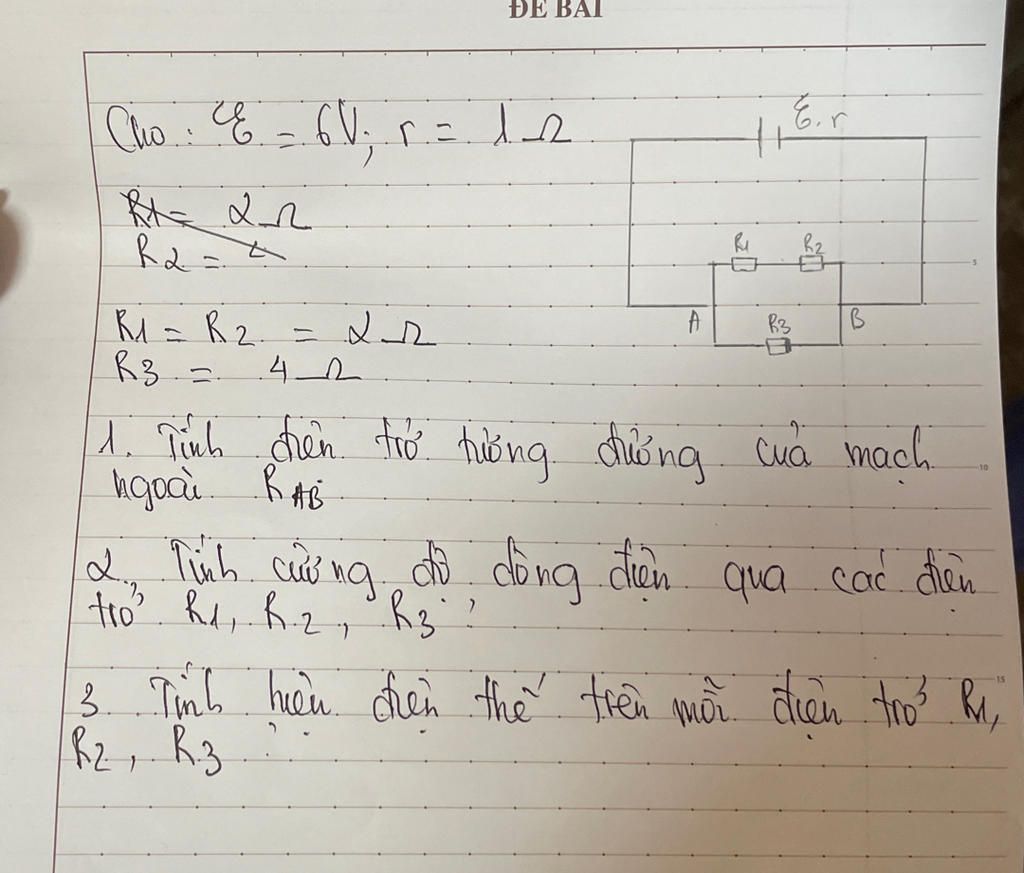 ĐỀ BÀI
Cho : ℰ = 6V; r = 1 Ω
R1 = 2 Ω
R2 =
R1 = R2 = 2 Ω
R3 = 4 Ω
1. Tính điện trở tương đương của mạch
ngoài RAB
2, Tính cường độ dòng điện qua các điện
trở R1, R2, R3 ?
3 Tính hiệu điện thế trên mỗi điện trở R1,
R2, R3 ?
ℰ, r
R1 R2
A R3 B
5
10
15